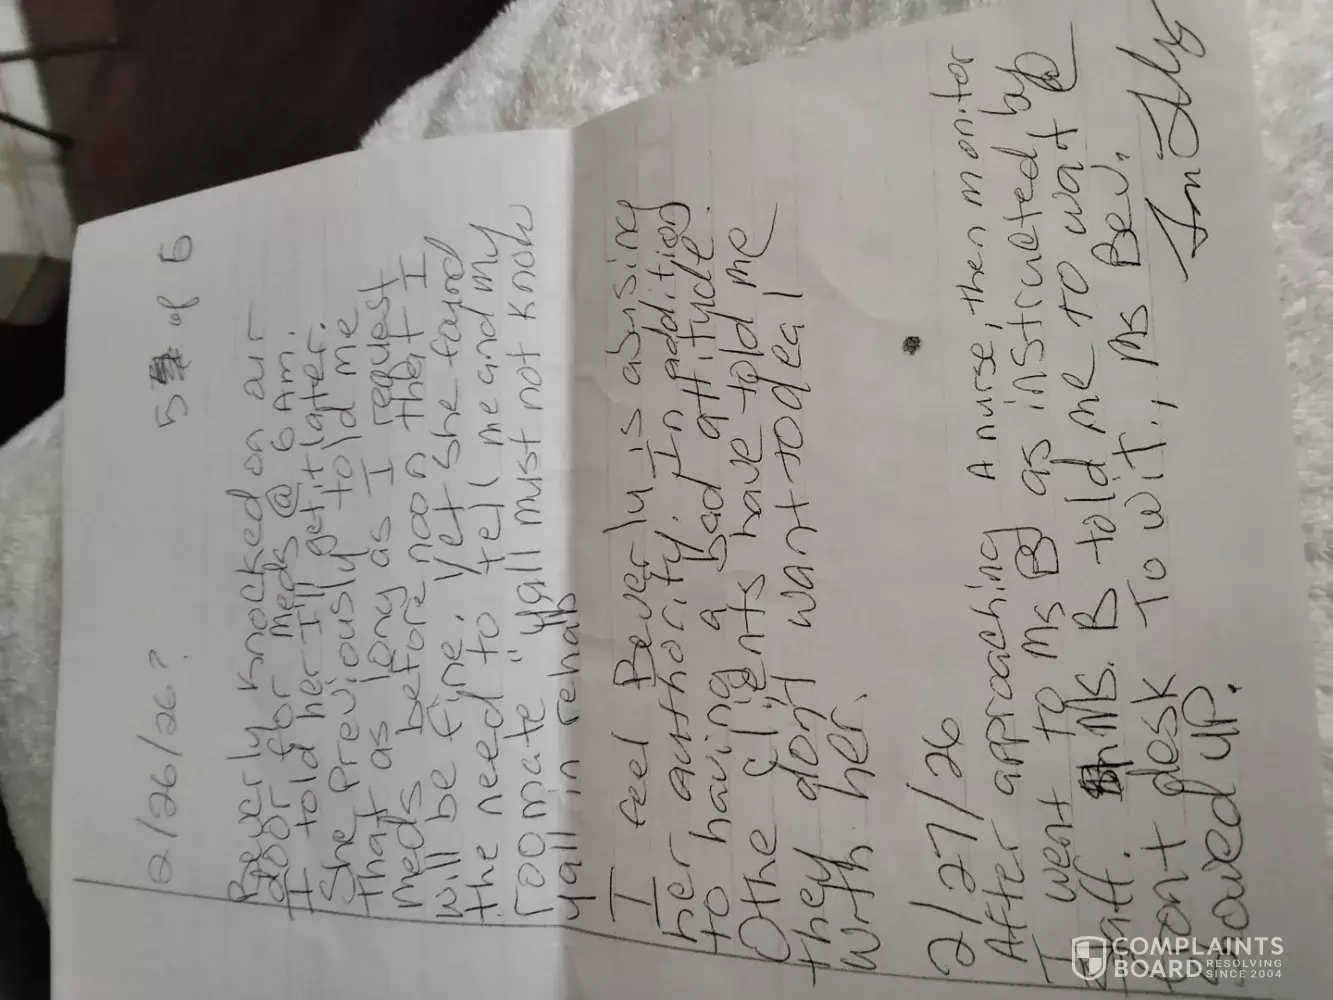 2/26/26?
5 of 5
Beverly knocked on our
door for Meds @ 6 Am.
I told her I'll get it later.
She previously told me
that as long as I request
meds before noon that I
will be fine. Yet she found
the need to tell me and my
roomate "yall must not know
yall in rehab
I feel Beverly is abusing
her authority. In addition
to having a bad attitude.
Othe clients have told me
they don't want to deal
with her.
2/27/26
After approaching A nurse, then monitor
I went to Ms B as instructed by
staff. Ms. B told me to wait @
front desk To wit, Ms Bev.
showed up.
COMPLAINTS
BOARD RESOLVING
SINCE 2004